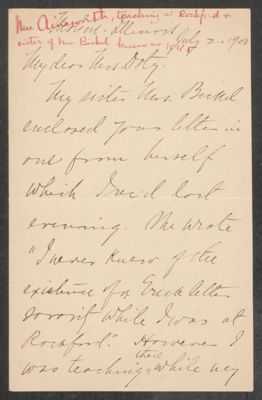 Mrs Ainsworth, teaching at Rockford &
sister of Mrs Bickel knew no
Moline, Illinois
July 2, 1908
My dear Miss Doty.
My sister Mrs. Bickel
enclosed your letter in
one from herself
which I rec'd last
evening. She wrote
"I never knew of the
existence of a Greek letter
sorority while I was at
Rockford." However I
was teaching there while my